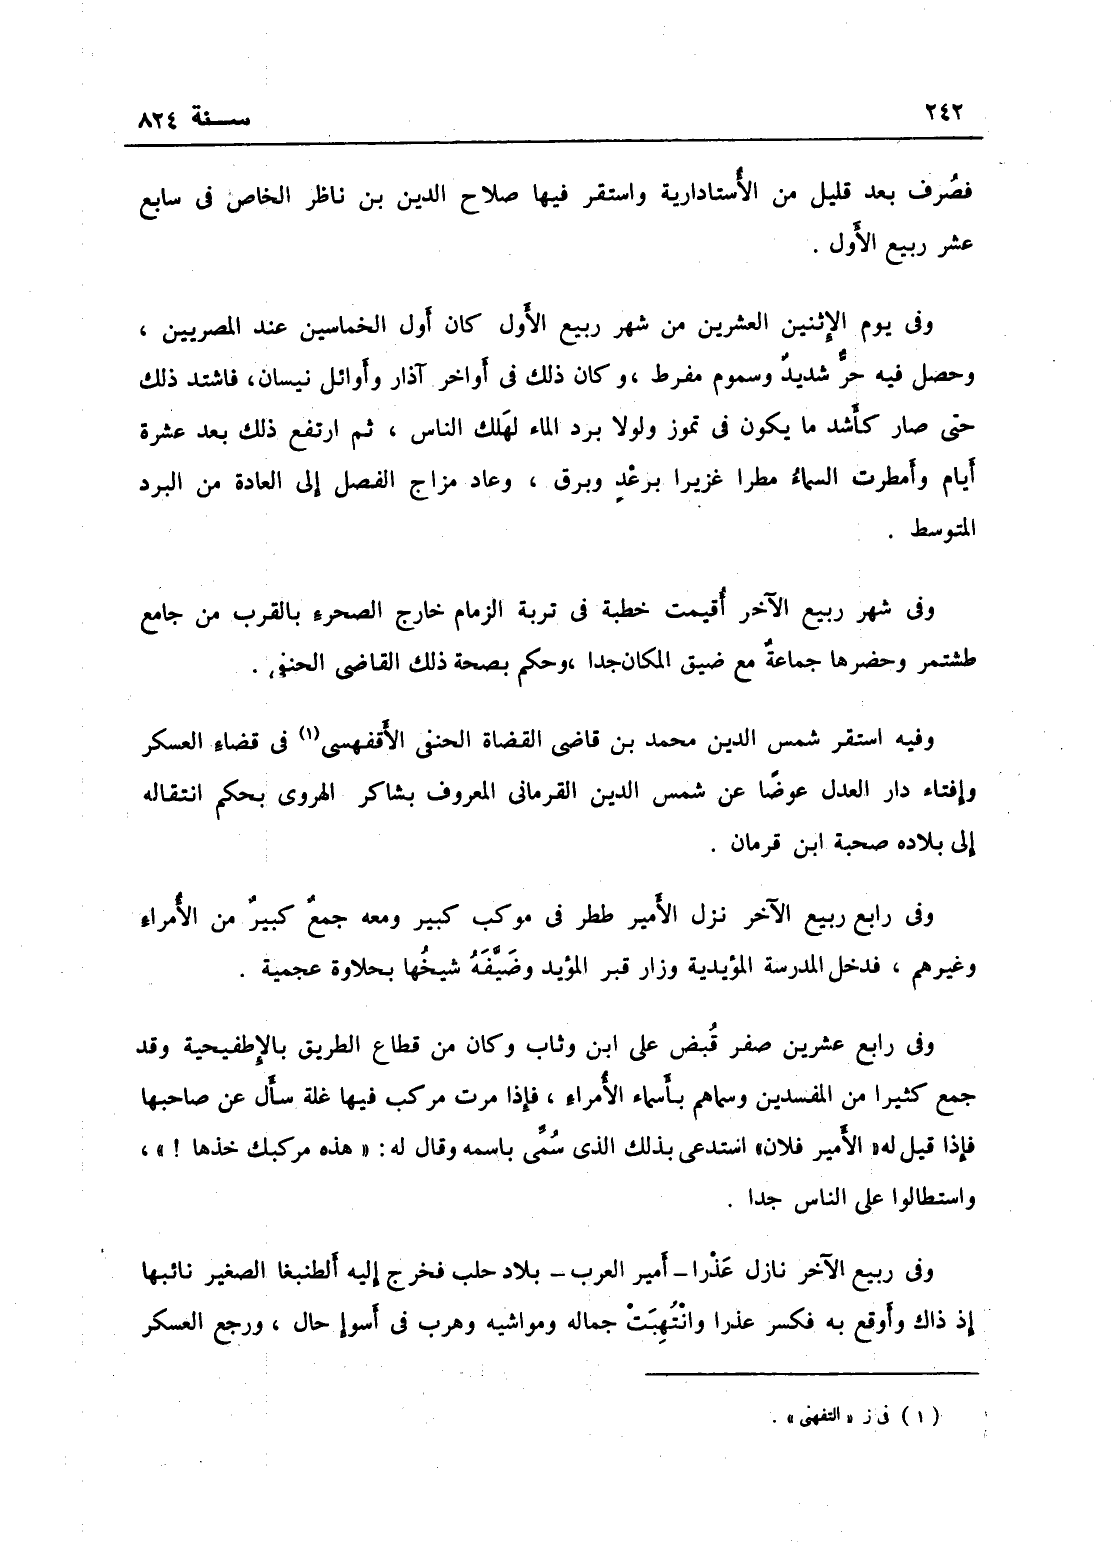 ٢٤٢
سنة ٨٢٤
فصُرف بعد قليل من الأُستادارية واستقر فيها صلاح الدين بن ناظر الخاص فى سابع
عشر ربيع الأَول .
وفى يوم الإِثنين العشرين من شهر ربيع الأَول كان أَول الخماسين عند المصريين ،
وحصل فيه حرٌّ شديدٌ وسموم مفرط ، وكان ذلك فى أَواخر آذار وأَوائل نيسان، فاشتد ذلك
حتى صار كأَشد ما يكون فى تموز ولولا برد الماء لهَلك الناس ، ثم ارتفع ذلك بعد عشرة
أَيام وأَمطرت السماءُ مطرا غزيرا برعْدٍ وبرق ، وعاد مزاج الفصل إلى العادة من البرد
المتوسط .
وفى شهر ربيع الآخر أُقيمت خطبة فى تربة الزمام خارج الصحرء بالقرب من جامع
طشتمر وحضرها جماعةٌ مع ضيق المكان جدا ،وحكم بصحة ذلك القاضى الحنفى .
وفيه استقر شمس الدين محمد بن قاضى القضاة الحنفى الأَقفهسى(١) فى قضاء العسكر
وإفتاء دار العدل عوضًا عن شمس الدين القرمانى المعروف بشاكر الهروى بحكم انتقاله
إلى بلاده صحبة ابن قرمان .
وفى رابع ربيع الآخر نزل الأَمير ططر فى موكب كبير ومعه جمعٌ كبيرٌ من الأُمراء
وغيرهم ، فدخل المدرسة المؤيدية وزار قبر المؤيد وضَيَّفَهُ شيخُها بحلاوة عجمية .
وفى رابع عشرين صفر قُبض على ابن وثاب وكان من قطاع الطريق بالإطفيحية وقد
جمع كثيرا من المفسدين وسماهم بأَسماء الأُمراء ، فإذا مرت مركب فيها غلة سأَل عن صاحبها
فإذا قيل له« الأَمير فلان» استدعى بذلك الذى سُمِّى باسمه وقال له : « هذه مركبك خذها ! » ،
واستطالوا على الناس جدا .
وفى ربيع الآخر نازل عَذْرا – أَمير العرب – بلاد حلب فخرج إليه أَلطنبغا الصغير نائبها
إذ ذاك وأَوقع به فكسر عذرا وانْتُهِبَتْ جماله ومواشيه وهرب فى أَسوإِ حال ، ورجع العسكر
( ١ ) فى ز « التفهنى » .